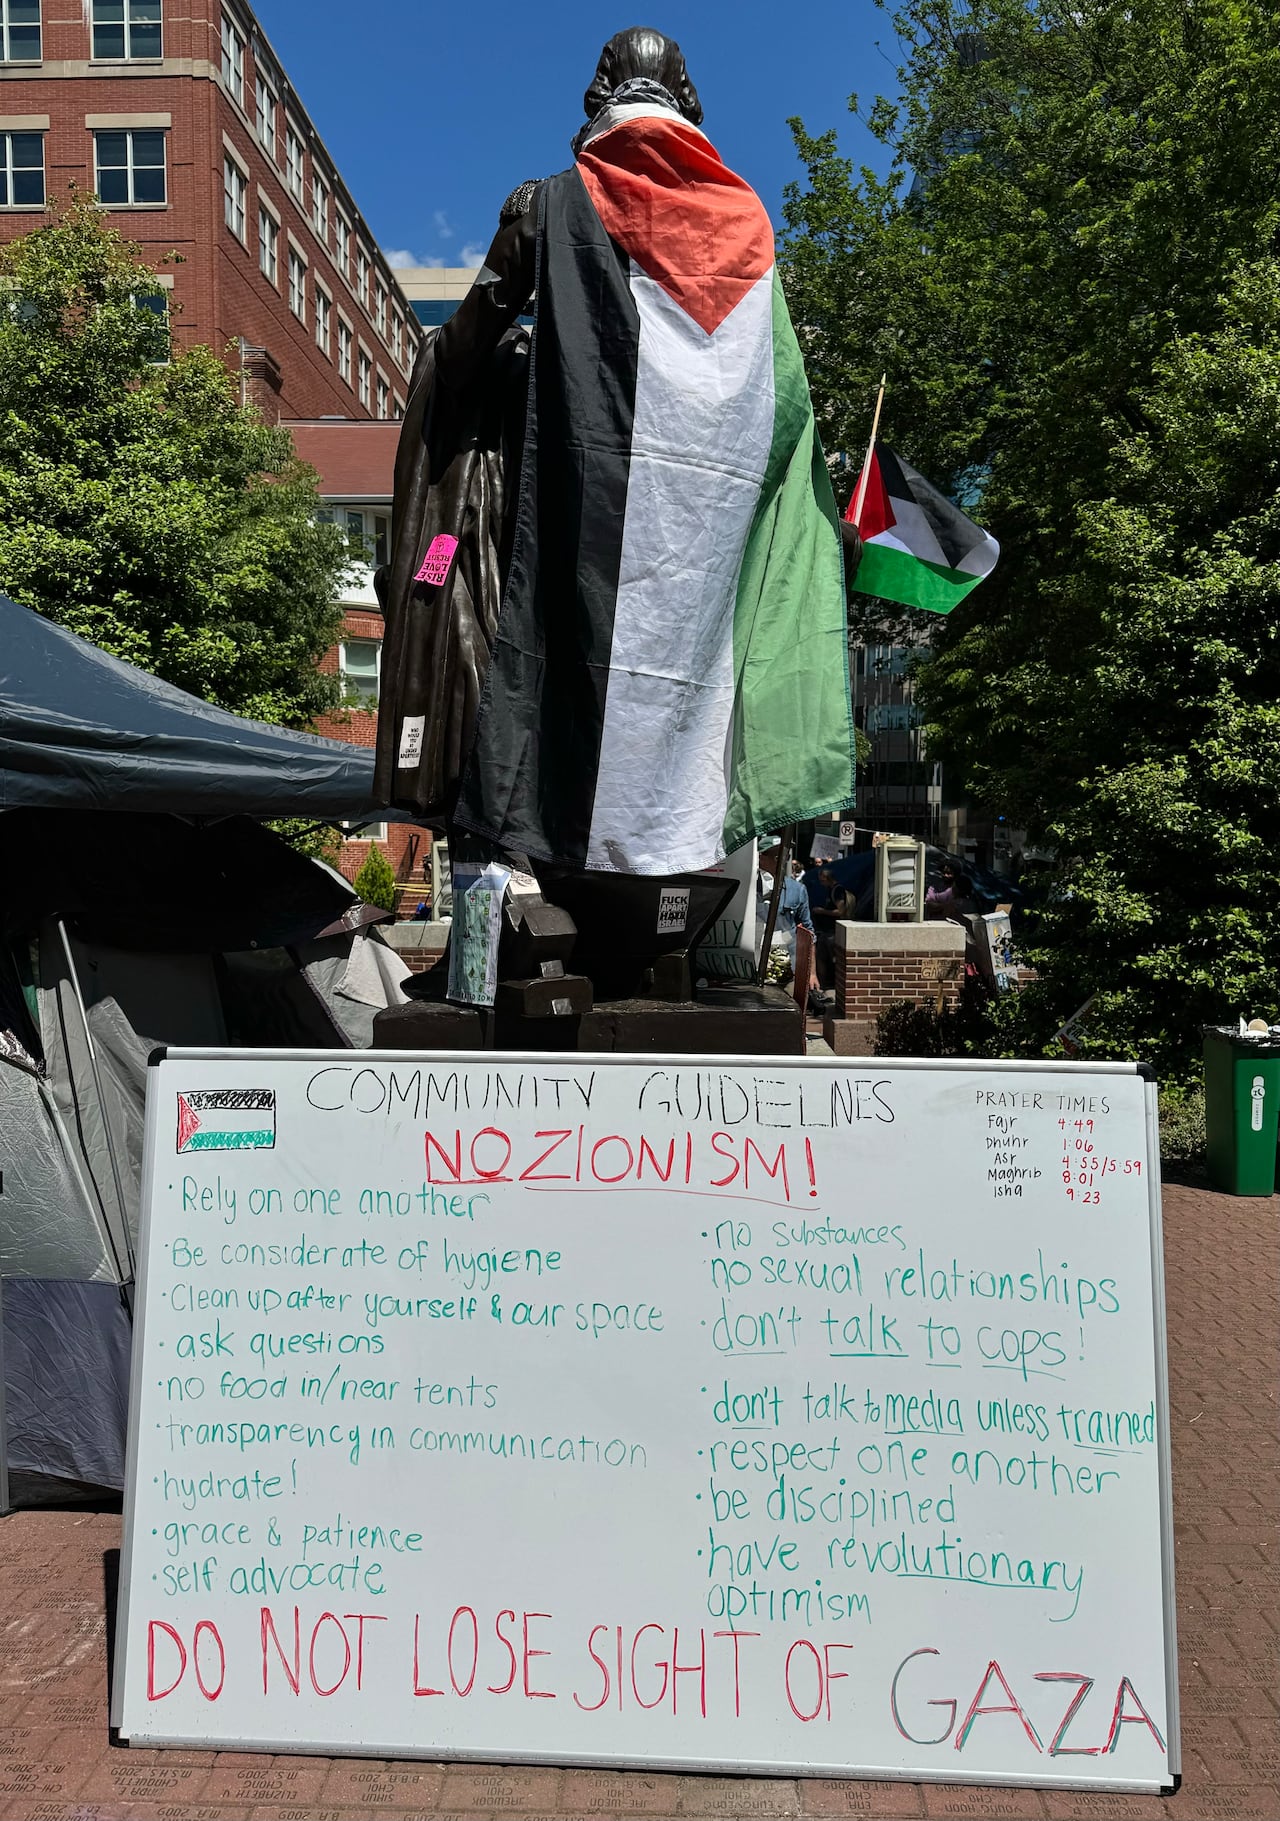 RISE
LOVE
RESIST
FUCK
APART
HEID
ISRAEL
COMMUNITY GUIDELINES
NO ZIONISM!
PRAYER TIMES
Fajr 4:49
Dhuhr 1:06
Asr 4:55/5:59
Maghrib 8:01
Isha 9:23
·Rely on one another
·Be considerate of hygiene
·Clean up after yourself & our space
·ask questions
·no food in/near tents
·transparency in communication
·hydrate!
·grace & patience
·self advocate
·no substances
no sexual relationships
·don't talk to cops!
·don't talk to media unless trained
·respect one another
·be disciplined
·have revolutionary
optimism
DO NOT LOSE SIGHT OF GAZA